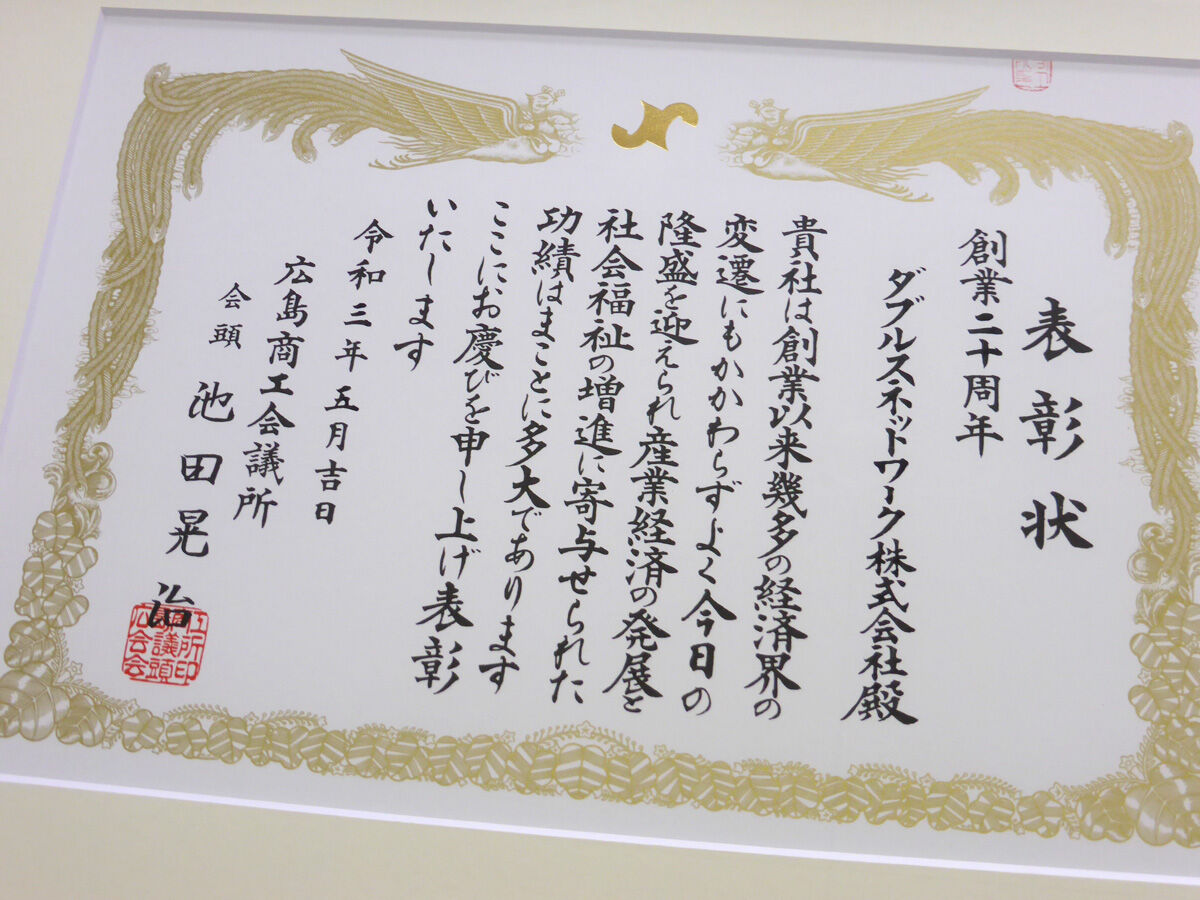 表彰状
創業二十周年
ダブルスネットワーク株式会社殿
貴社は創業以来幾多の経済界の
変遷にもかかわらずよく今日の
隆盛を迎えられ産業経済の発展と
社会福祉の増進に寄与せられた
功績はまことに多大であります
ここにお慶びを申し上げ表彰
いたします
令和三年五月吉日
広島商工会議所
会頭 池田晃治